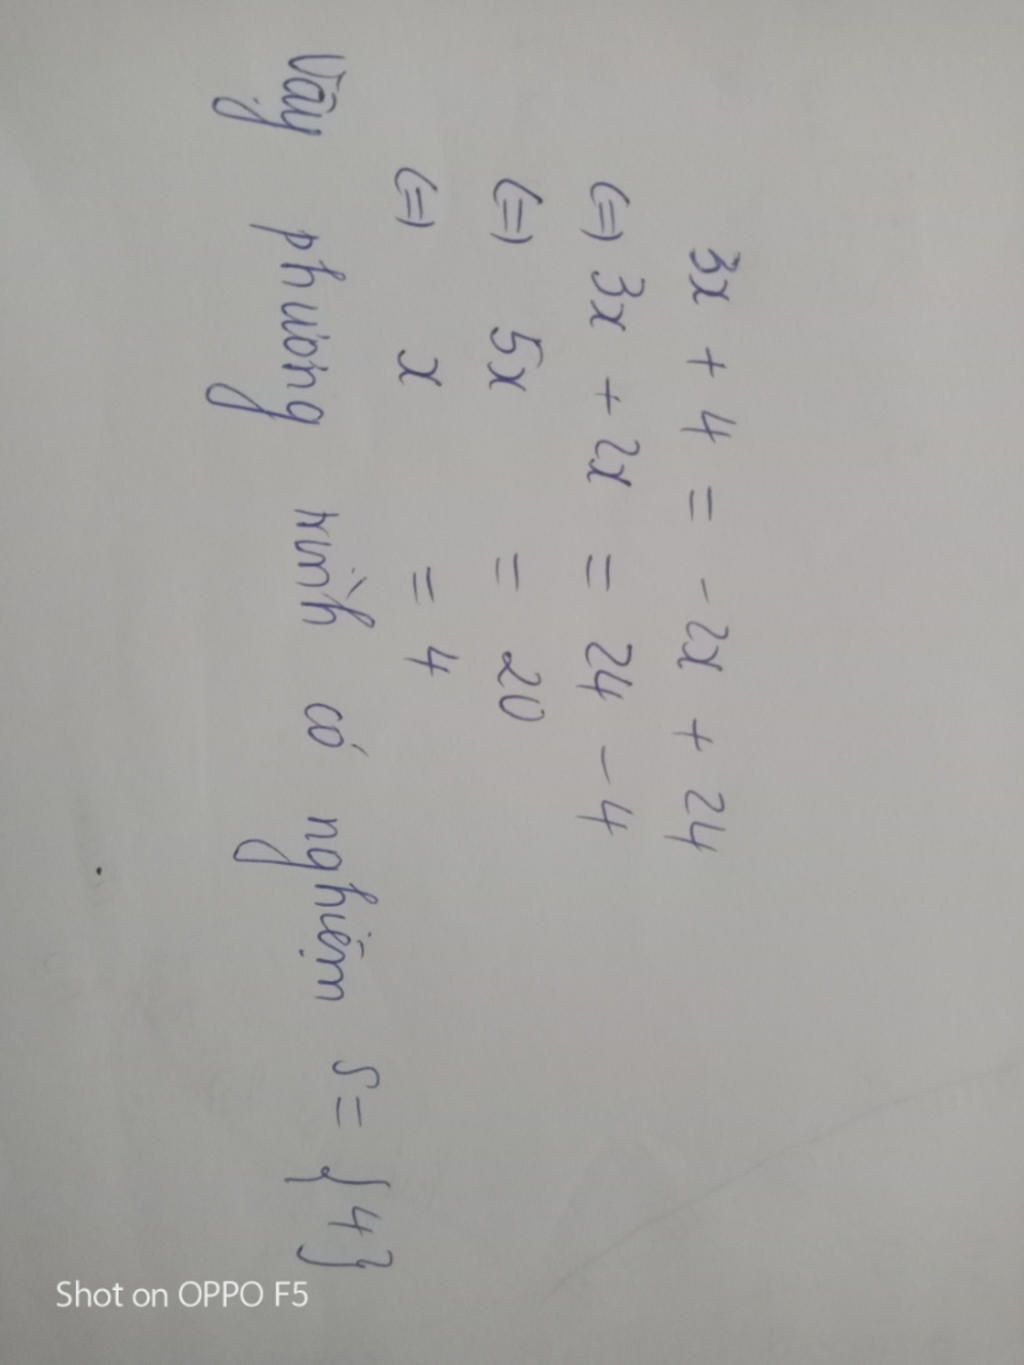 3x + 4 = -2x + 24
(=) 3x + 2x = 24 - 4
(=) 5x = 20
(=) x = 4
Vậy phương trình có nghiệm S = {4}
Shot on OPPO F5